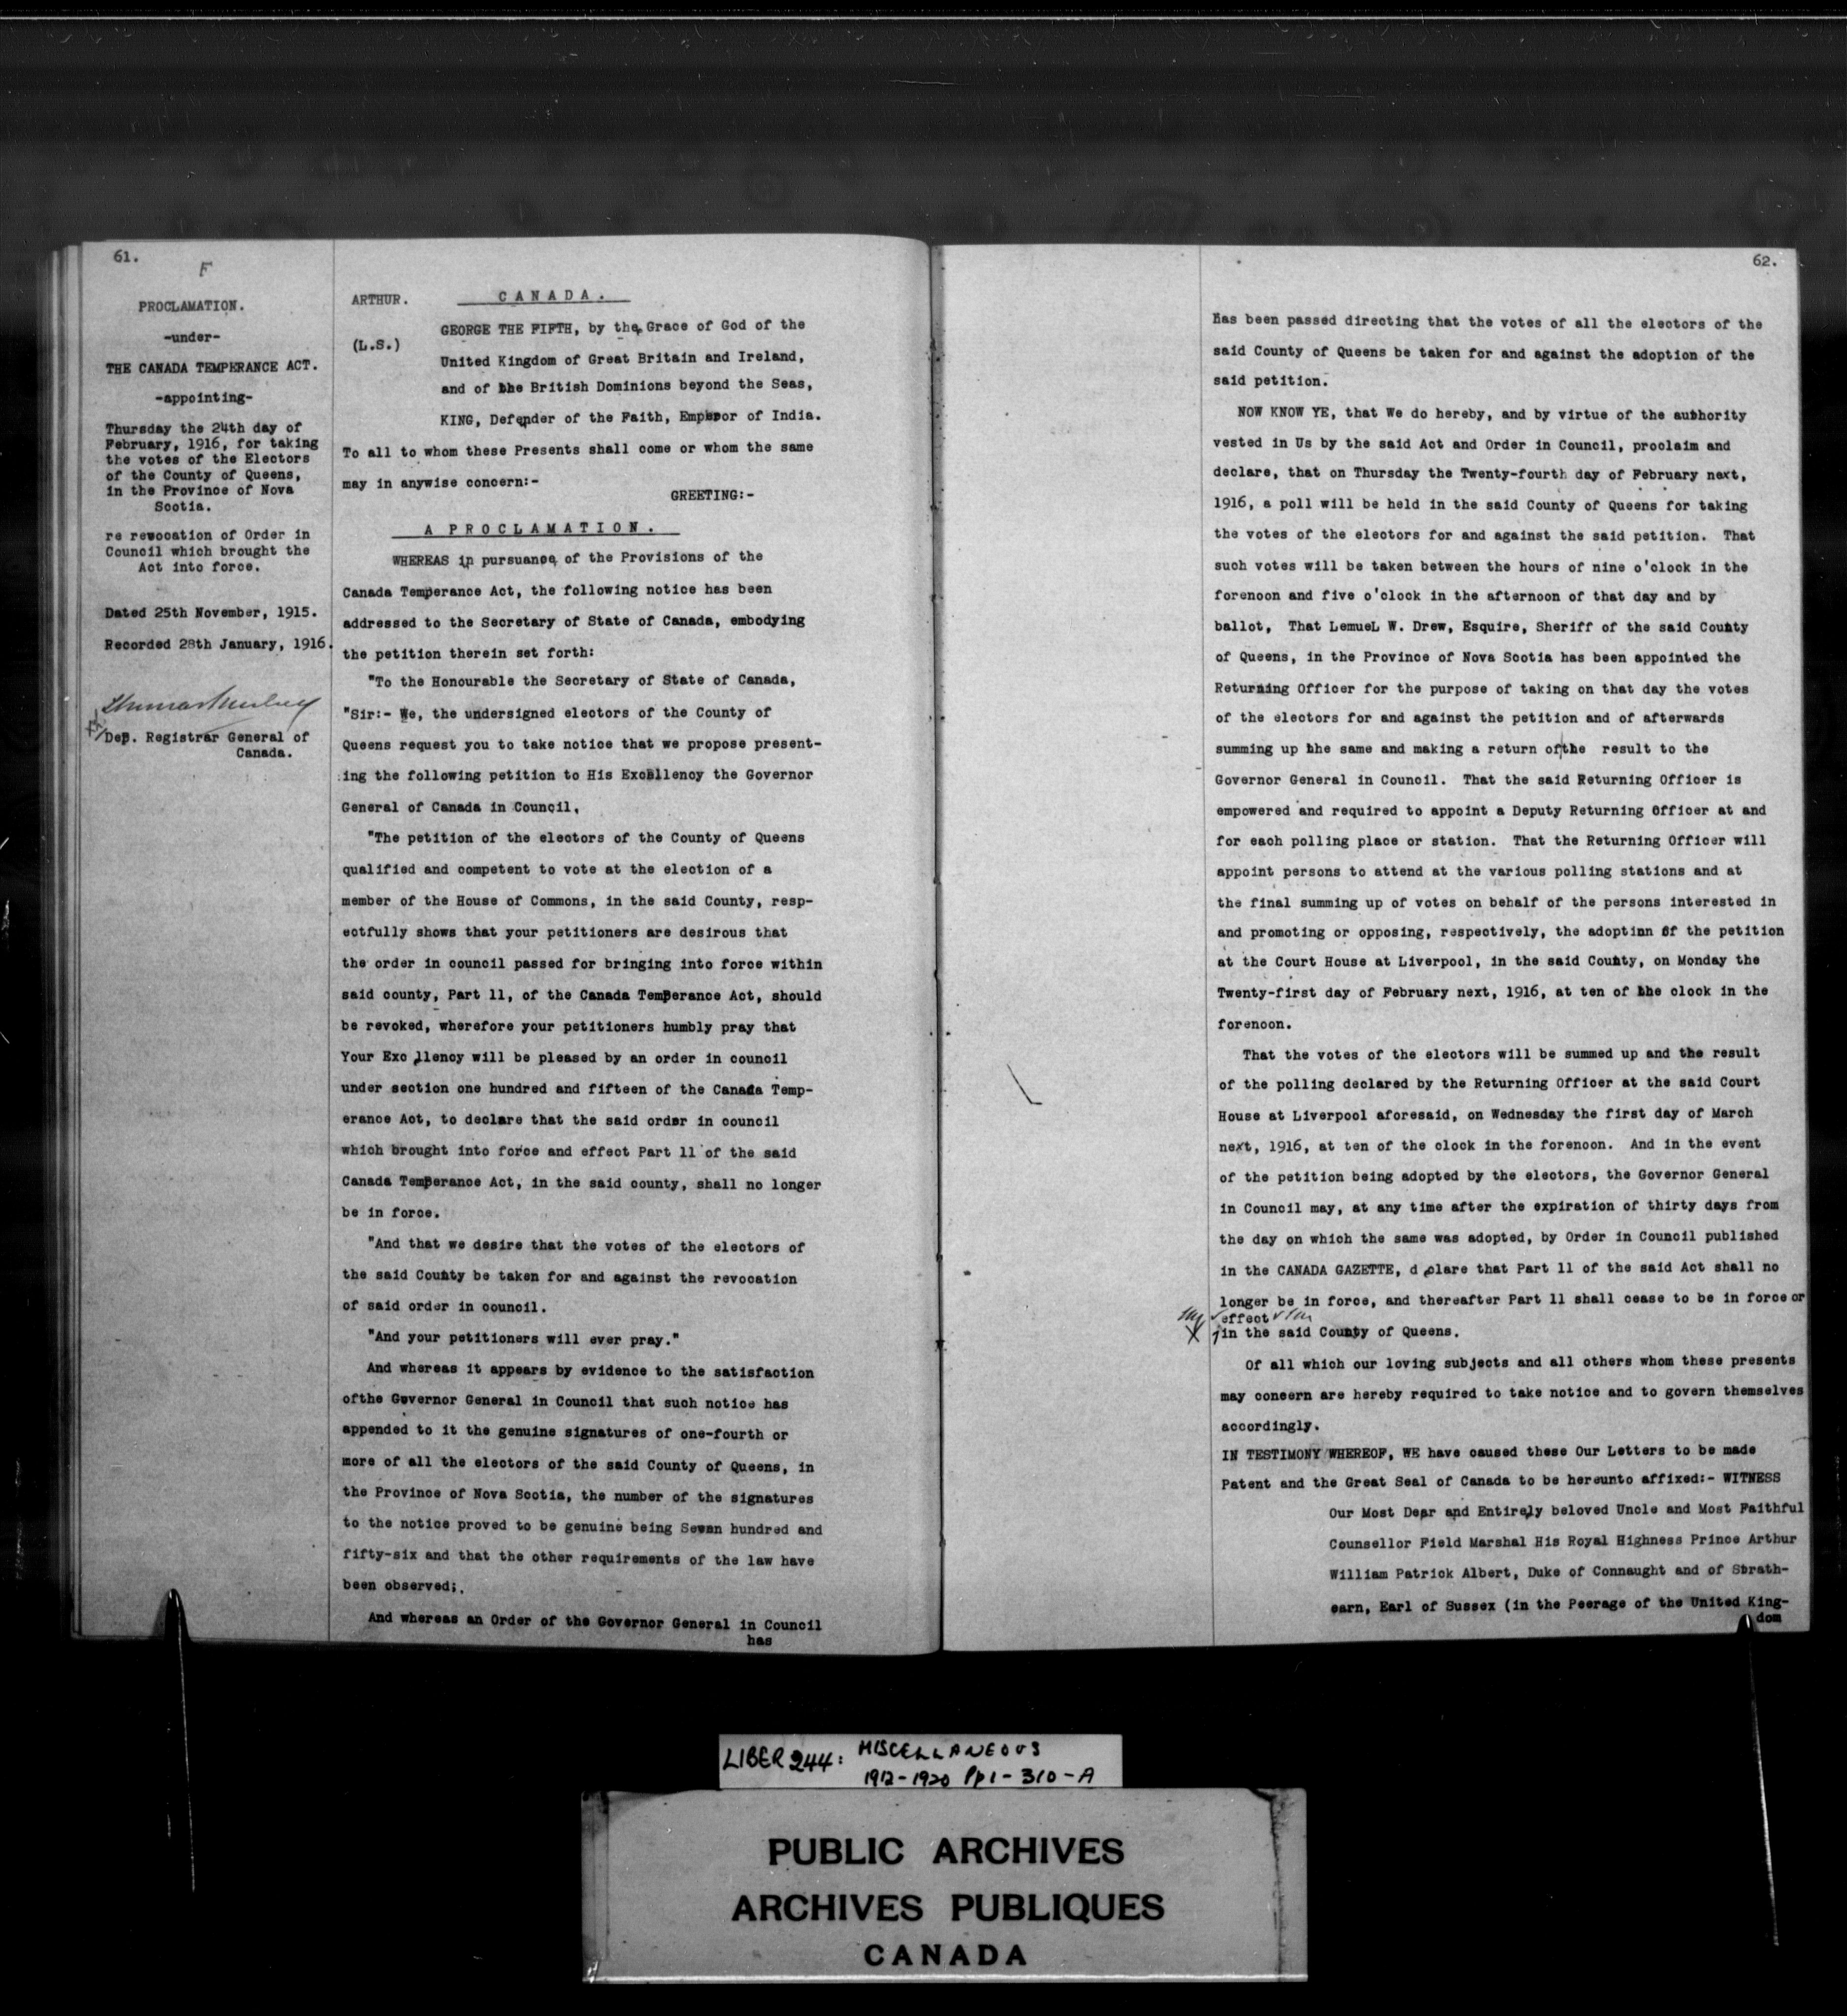 61.
F
PROCLAMATION.
-under-
THE CANADA TEMPERANCE ACT.
-appointing-
Thursday the 24th day of
February, 1916, for taking
the votes of the Electors
of the County of Queens,
in the Province of Nova
Scotia.
re revocation of Order in
Council which brought the
Act into force.
Dated 25th November, 1915.
Recorded 28th January, 1916.
Dep. Registrar General of
Canada.
ARTHUR.
CANADA.
(L.S.)
GEORGE THE FIFTH, by the Grace of God of the
United Kingdom of Great Britain and Ireland,
and of the British Dominions beyond the Seas,
KING, Defender of the Faith, Emperor of India.
To all to whom these Presents shall come or whom the same
may in anywise concern:-
GREETING:-
A PROCLAMATION.
WHEREAS in pursuance of the Provisions of the
Canada Temperance Act, the following notice has been
addressed to the Secretary of State of Canada, embodying
the petition therein set forth:
"To the Honourable the Secretary of State of Canada,
"Sir:- We, the undersigned electors of the County of
Queens request you to take notice that we propose present-
ing the following petition to His Excellency the Governor
General of Canada in Council,
"The petition of the electors of the County of Queens
qualified and competent to vote at the election of a
member of the House of Commons, in the said County, resp-
ectfully shows that your petitioners are desirous that
the order in council passed for bringing into force within
said county, Part 11, of the Canada Temperance Act, should
be revoked, wherefore your petitioners humbly pray that
Your Exc llency will be pleased by an order in council
under section one hundred and fifteen of the Canada Temp-
erance Act, to declare that the said order in council
which brought into force and effect Part 11 of the said
Canada Temperance Act, in the said county, shall no longer
be in force.
"And that we desire that the votes of the electors of
the said County be taken for and against the revocation
of said order in council.
"And your petitioners will ever pray."
And whereas it appears by evidence to the satisfaction
ofthe Governor General in Council that such notice has
appended to it the genuine signatures of one-fourth or
more of all the electors of the said County of Queens, in
the Province of Nova Scotia, the number of the signatures
to the notice proved to be genuine being Seven hundred and
fifty-six and that the other requirements of the law have
been observed;.
And whereas an Order of the Governor General in Council
has
62.
has been passed directing that the votes of all the electors of the
said County of Queens be taken for and against the adoption of the
said petition.
NOW KNOW YE, that We do hereby, and by virtue of the authority
vested in Us by the said Act and Order in Council, proclaim and
declare, that on Thursday the Twenty-fourth day of February next,
1916, a poll will be held in the said County of Queens for taking
the votes of the electors for and against the said petition. That
such votes will be taken between the hours of nine o'clock in the
forenoon and five o'clock in the afternoon of that day and by
ballot, That LemueL W. Drew, Esquire, Sheriff of the said County
of Queens, in the Province of Nova Scotia has been appointed the
Returning Officer for the purpose of taking on that day the votes
of the electors for and against the petition and of afterwards
summing up the same and making a return of the result to the
Governor General in Council. That the said Returning Officer is
empowered and required to appoint a Deputy Returning Officer at and
for each polling place or station. That the Returning Officer will
appoint persons to attend at the various polling stations and at
the final summing up of votes on behalf of the persons interested in
and promoting or opposing, respectively, the adoption of the petition
at the Court House at Liverpool, in the said County, on Monday the
Twenty-first day of February next, 1916, at ten of the clock in the
forenoon.
That the votes of the electors will be summed up and the result
of the polling declared by the Returning Officer at the said Court
House at Liverpool aforesaid, on Wednesday the first day of March
next, 1916, at ten of the clock in the forenoon. And in the event
of the petition being adopted by the electors, the Governor General
in Council may, at any time after the expiration of thirty days from
the day on which the same was adopted, by Order in Council published
in the CANADA GAZETTE, d clare that Part 11 of the said Act shall no
longer be in force, and thereafter Part 11 shall cease to be in force or
effect
X in the said County of Queens.
Of all which our loving subjects and all others whom these presents
may concern are hereby required to take notice and to govern themselves
accordingly.
IN TESTIMONY WHEREOF, WE have caused these Our Letters to be made
Patent and the Great Seal of Canada to be hereunto affixed:- WITNESS
Our Most Dear and Entirely beloved Uncle and Most Faithful
Counsellor Field Marshal His Royal Highness Prince Arthur
William Patrick Albert, Duke of Connaught and of Strath-
earn, Earl of Sussex (in the Peerage of the United King-
dom
LIBER 244: MISCELLANEOUS
1912-1920 Pp 1-310-A
PUBLIC ARCHIVES
ARCHIVES PUBLIQUES
CANADA